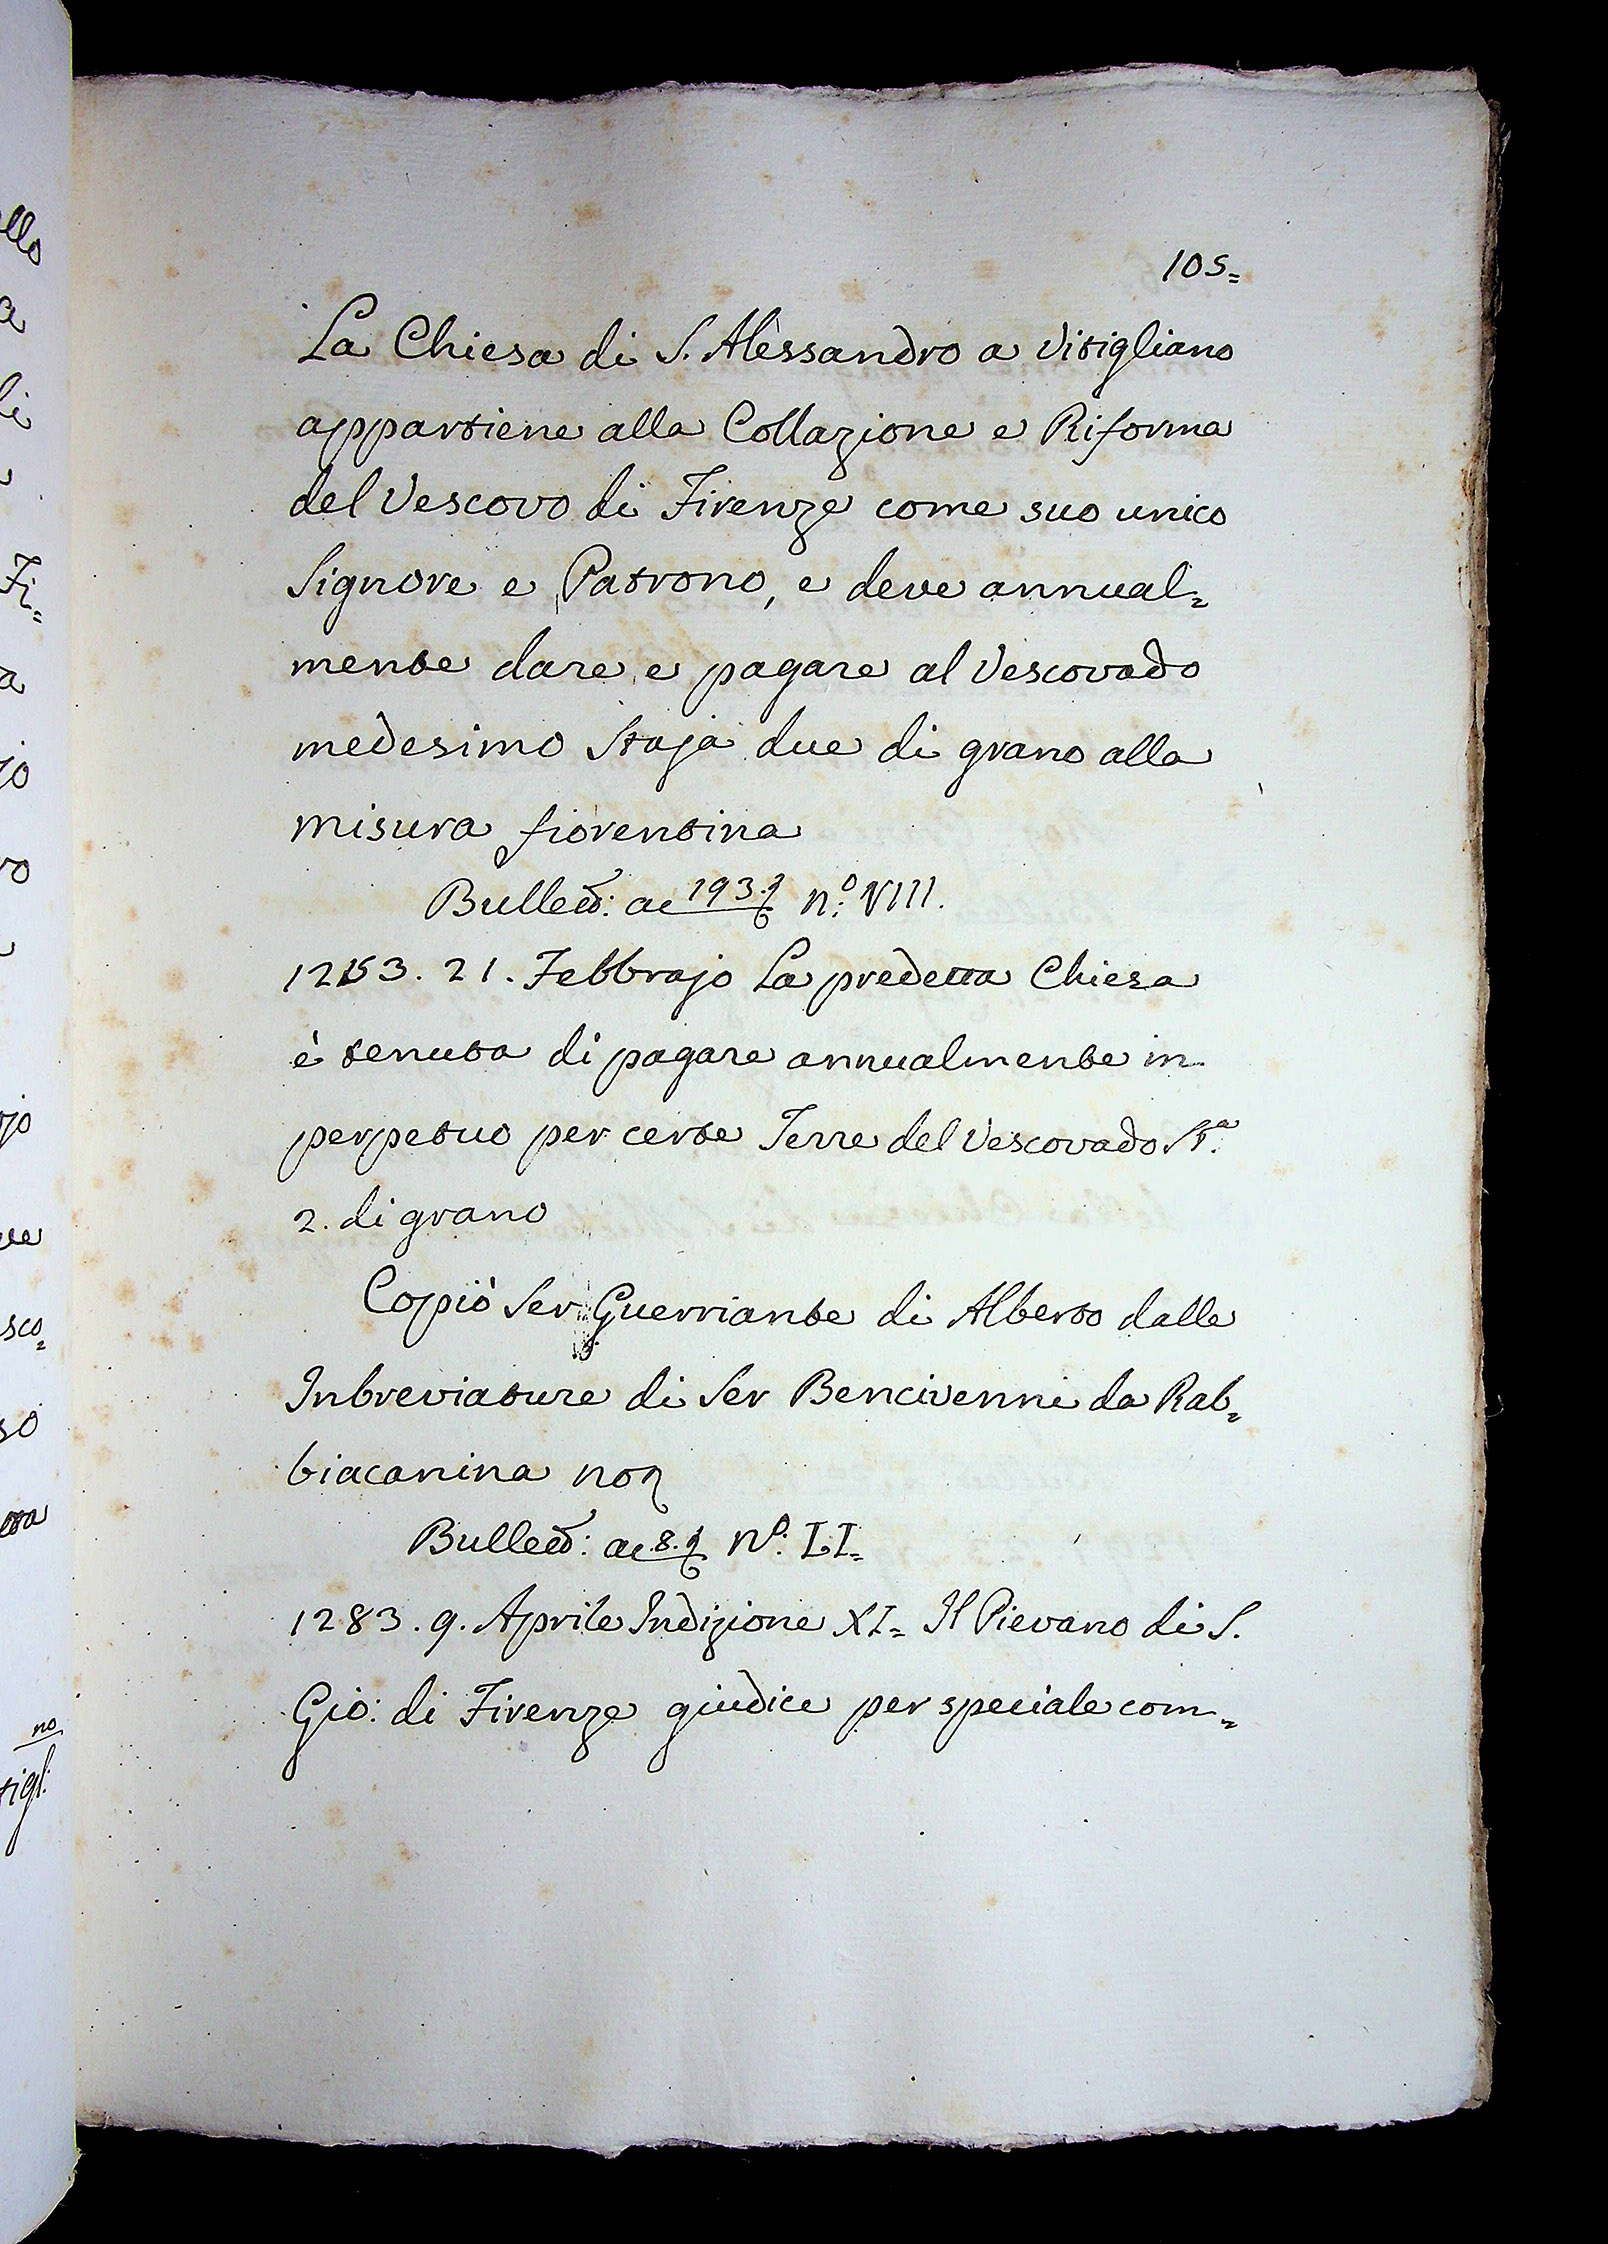 105=
La Chiesa di S. Alessandro a Vitigliano
appartiene alla Collazione e Riforma
del Vescovo di Firenze come suo unico
Signore e Patrono, e deve annual=
mente dare e pagare al Vescovado
medesimo Staja due di grano alla
misura fiorentina
Bullett: ac 193. nº: VIII.
1253. 21. Febbrajo La predetta Chiesa
è tenuta di pagare annualmente in
perpetuo per certe Terre del Vescovado Stª.
2. di grano
Copiò Ser Guerriante di Alberto dalle
Inbreviature di Ser Bencivenni da Rab=
biacanina not
Bullett: ac 8. Nº: LI=
1283. 9. Aprile Indizione XI= Il Pievano di S.
Gio: di Firenze giudice per speciale com=